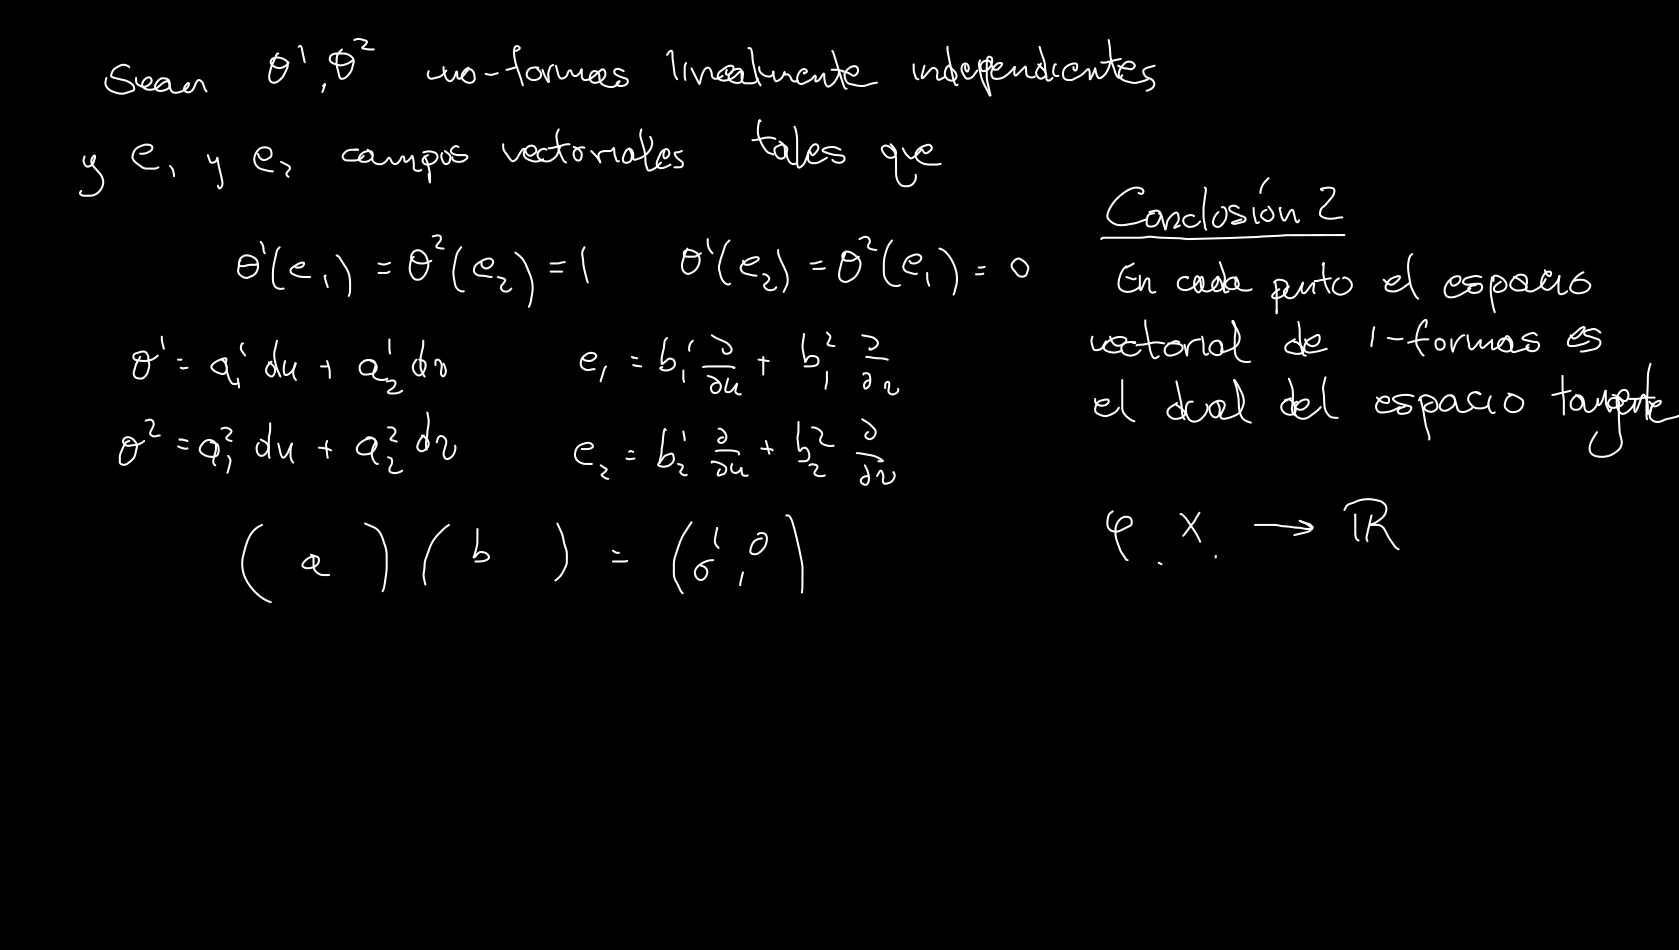 Sean θ¹, θ² uno-formas linealmente independientes
y e₁ y e₂ campos vectoriales tales que
θ¹(e₁) = θ²(e₂) = 1 θ¹(e₂) = θ²(e₁) = 0
θ¹ = a¹₁ du + a¹₂ dv e₁ = b¹₁ ∂/∂u + b²₁ ∂/∂v
θ² = a²₁ du + a²₂ dv e₂ = b¹₂ ∂/∂u + b²₂ ∂/∂v
( a ) ( b ) = ( 1 0 
0 1 )
Conclusión 2
En cada punto el espacio
vectorial de 1-formas es
el dual del espacio tangente
φ X → ℝ